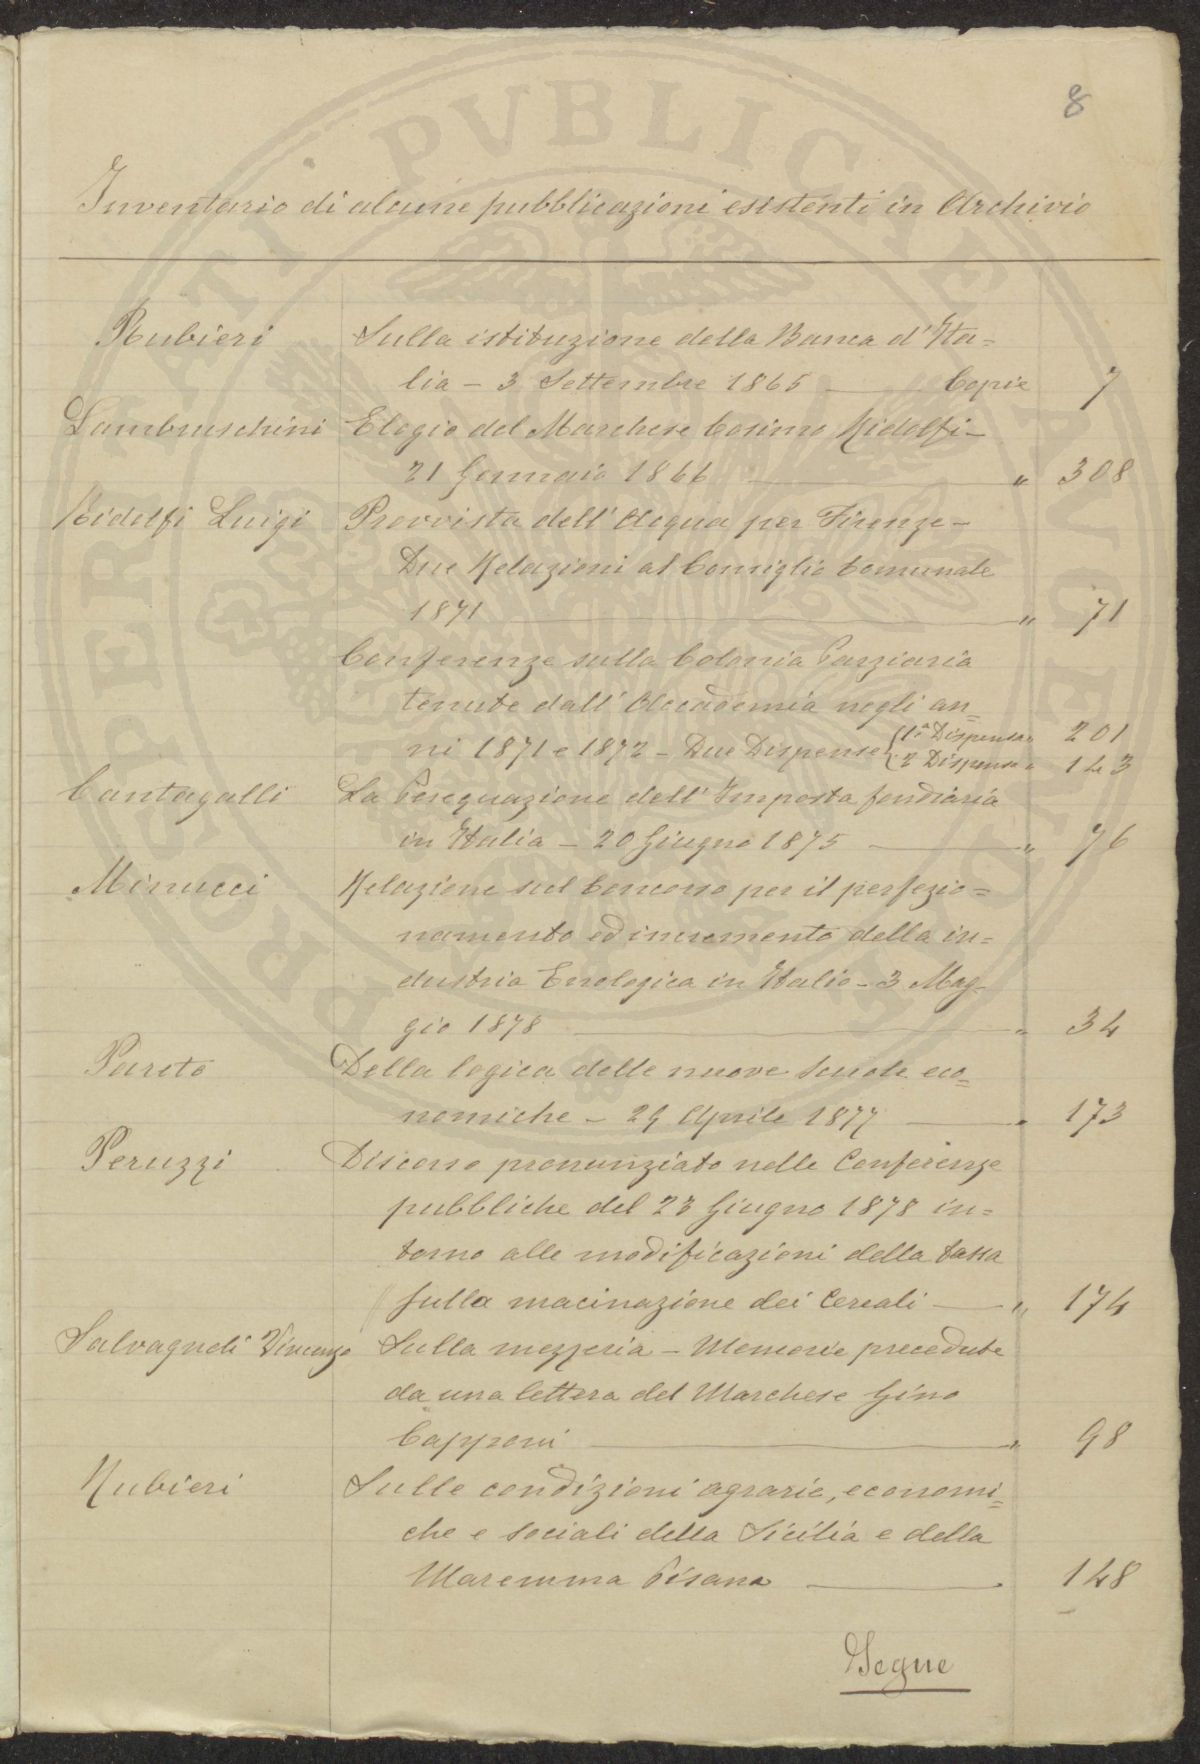 8
Inventario di alcune pubblicazioni esistenti in Archivio
Rubieri Sulla istituzione della Banca d'Ita=
lia – 3 Settembre 1865 — Copie 7
Lambruschini Elogio del Marchese Cosimo Ridolfi –
21 Gennaio 1866 — " 308
Ridolfi Luigi Provvista dell'Acqua per Firenze –
Due Relazioni al Consiglio Comunale
1871 — " 71
Conferenze sulla Colonia Parziaria
tenute dall'Accademia negli an=
ni 1871 e 1872 – Due Dispense { 1ª Dispensa " 201
{ 2 Dispensa " 143
Cantagalli La Perequazione dell'Imposta fondiaria
in Italia – 20 Giugno 1875 — " 76
Minucci Relazione sul Concorso per il perfezio=
namento ed incremento della in=
dustria Enologica in Italia – 3 Mag-
gio 1878 — " 34
Pareto Della logica delle nuove scuole eco=
nomiche – 29 Aprile 1877 — " 173
Peruzzi Discorso pronunziato nelle Conferenze
pubbliche del 23 Giugno 1878 in=
torno alle modificazioni della tassa
sulla macinazione dei Cereali — " 174
Salvagnoli Vincenzo Sulla mezzeria – Memorie precedute
da una lettera del Marchese Gino
Capponi — " 98
Rubieri Sulle condizioni agrarie, economi=
che e sociali della Sicilia e della
Maremma Pisana — 148
Segue
PROSPERITATI PVBLICAE AVGENDAE